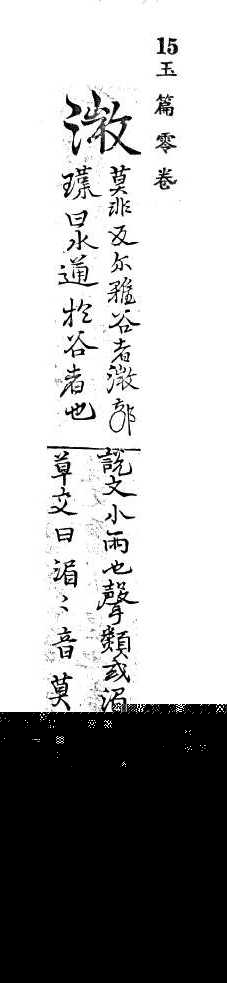 15 玉篇零卷
溦
莫非反尔雅谷者溦郭
璞曰水通扵谷者也
說文小雨也聲類或湄
草交曰湄〻音莫